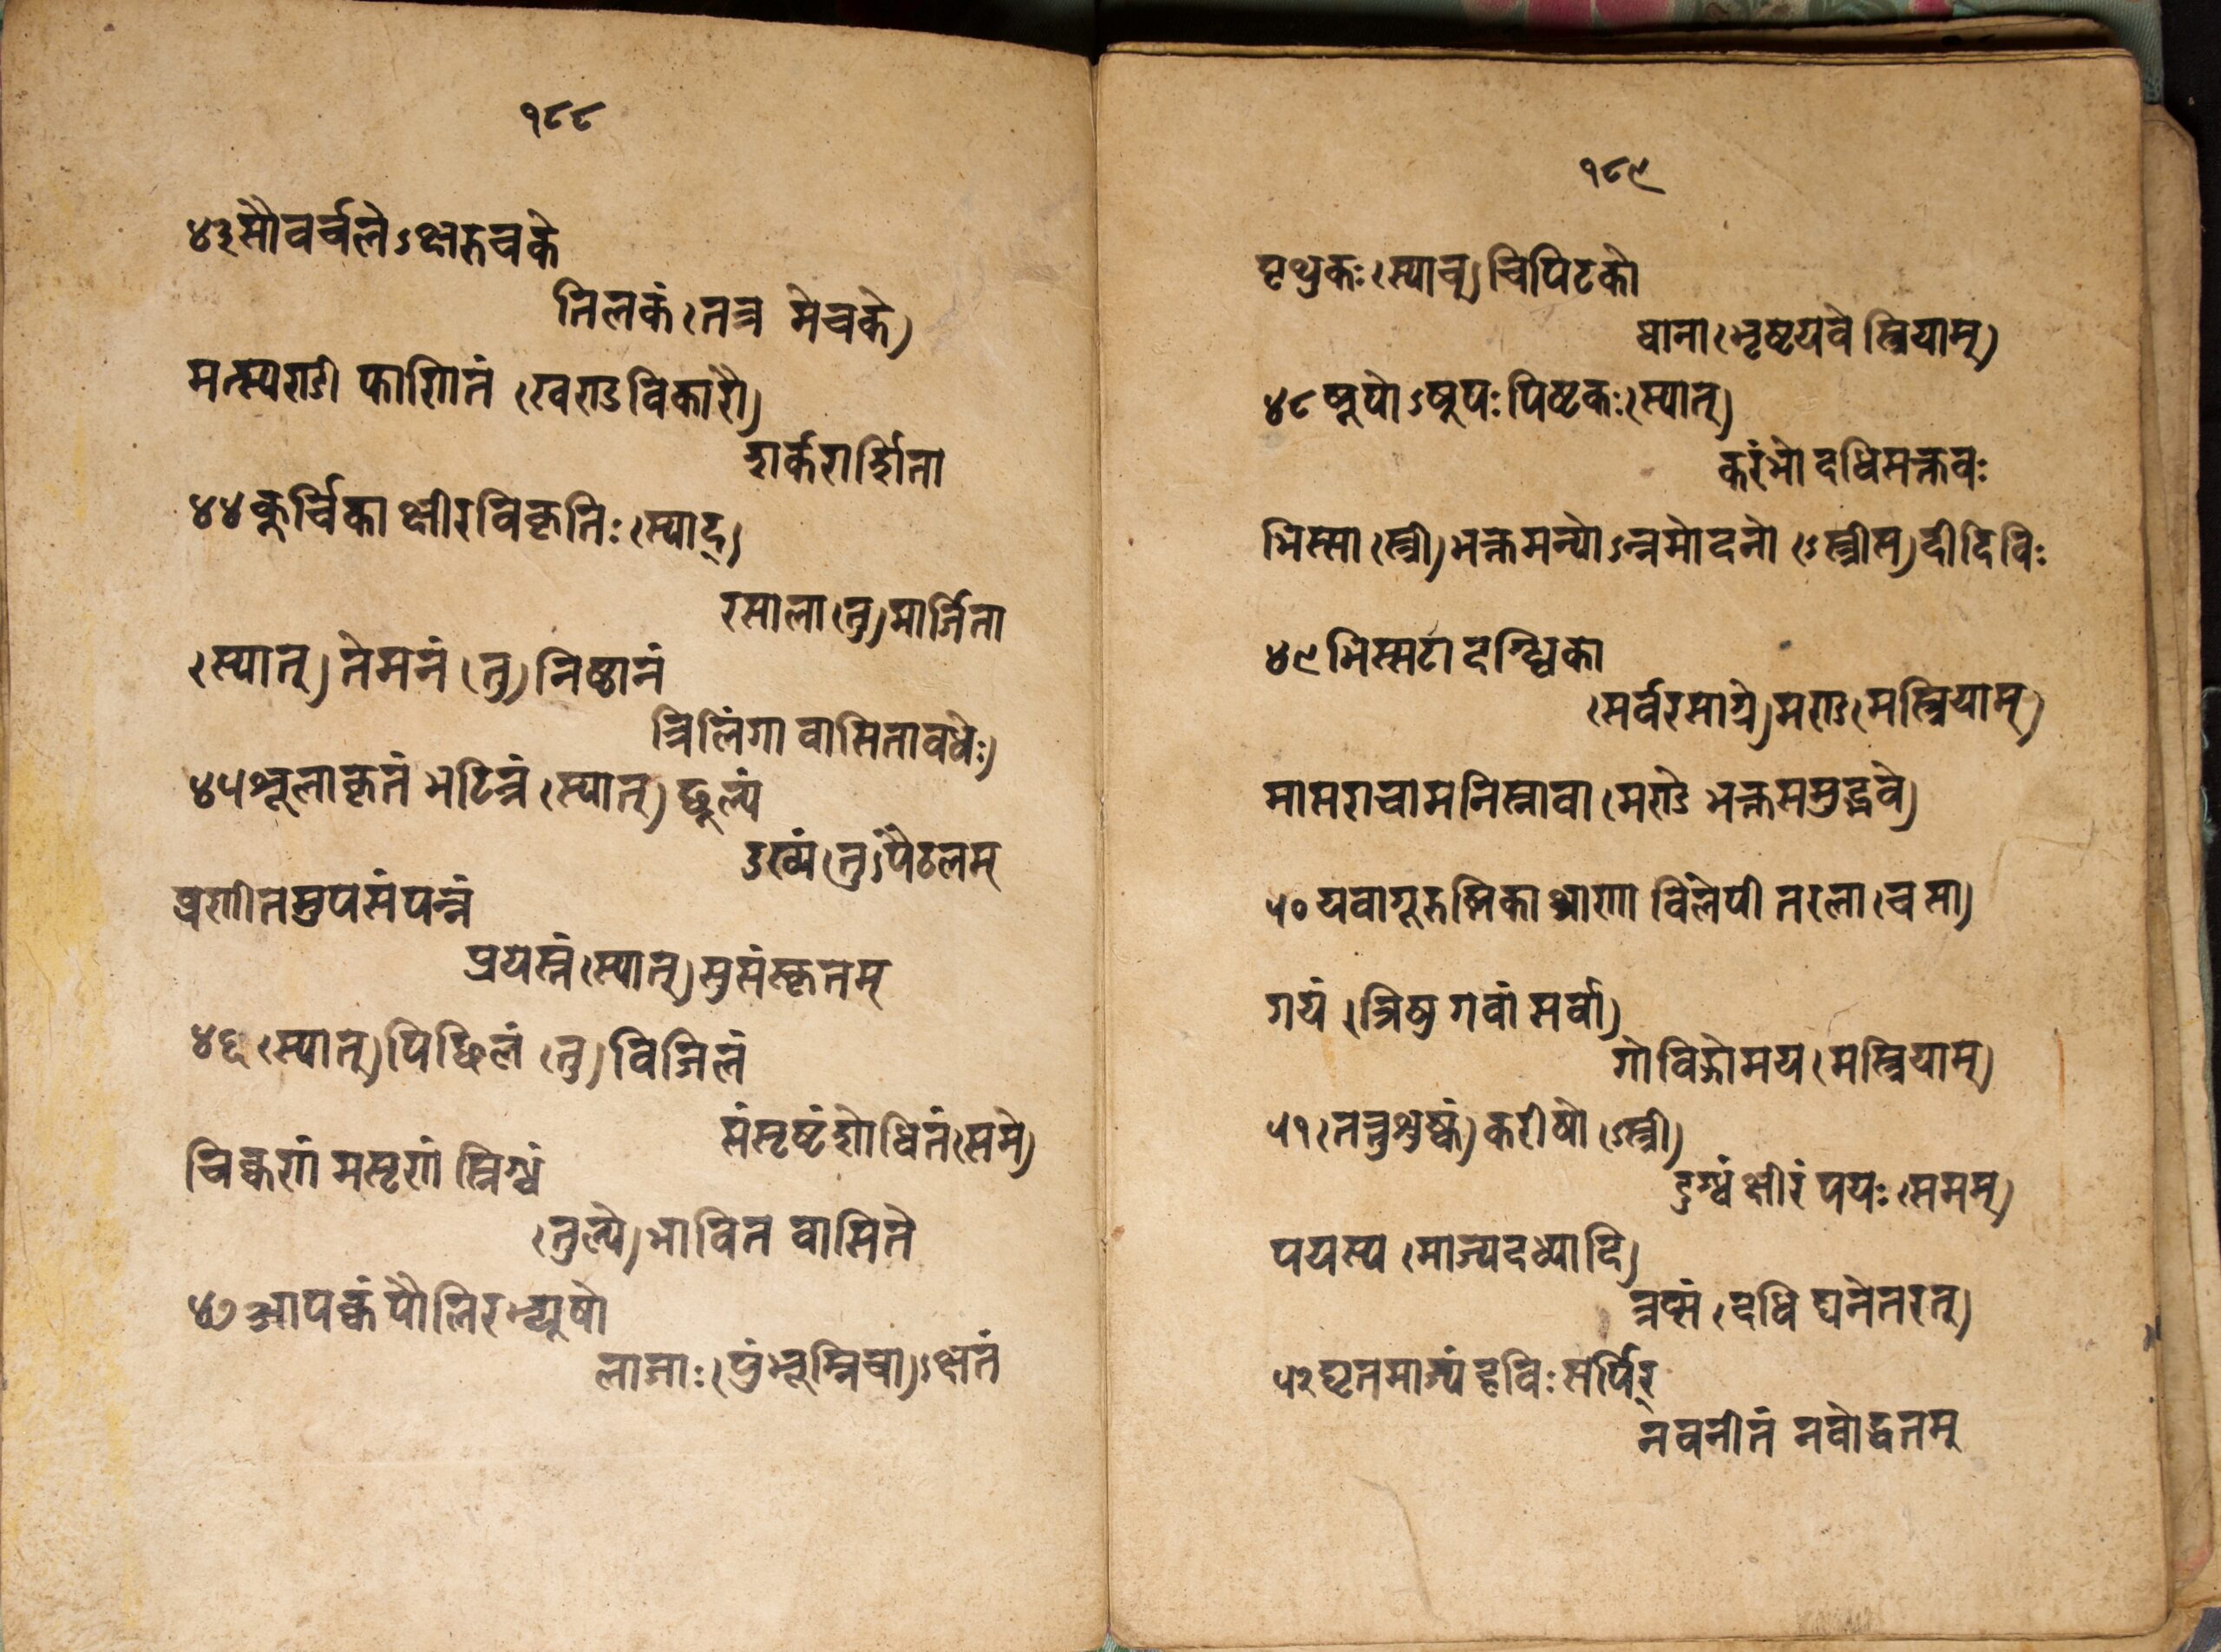 १८८
४३ सौवर्चलेऽक्षरुचके
तिलकं (तत्र मेचके)
मत्स्यण्डी फाणितं (खण्डविकारौ)
शर्करा शिता
४४ कूर्चिका क्षीरविकृतिः (स्याद्)
रसाला (तु) मार्जिता
(स्यात्) तेमनं (तु) निष्ठानं
त्रिलिंगा वासितावधेः)
४५ शूलाकृतं भटित्रं (स्यात्) छूल्यं
उख्यं (तु) पैठलम्
प्रणीतमुपसंपन्नं
प्रयस्तं (स्यात्) सुसंस्कृतम्
४६ (स्यात्) पिछिलं (तु) विजिलं
संसृष्टं शोधितं (समे)
चिक्कणं मसृणं स्निग्धं
(तुल्ये) भावित वासिते
४७ आपक्वं पौलिरभ्यूषो
लाजाः (पुंभूम्निचा)ऽक्षतं
१८९
पृथुकः (स्याच्) चिपिटको
धाना (भृष्टयवे स्त्रियाम्)
४८ पूपोऽपूपः पिष्टकः (स्यात्)
करंभो दधिसक्तवः
भिस्सा (स्त्री) भक्तमन्धोऽन्नमोदनो (ऽस्त्रीस) दीदिविः
४९ भिस्सटा दग्धिका
(सर्वरसाग्रे) मण्ड (मस्त्रियाम्)
मासराचामनिस्रावा (मण्डे भक्तसमुद्भवे)
५० यवागूरुष्णिका श्राणा विलेपी तरला (च सा)
गव्यं (त्रिषु गवां सर्वं)
गोविड्गोमय (मस्त्रियाम्)
५१ (तत्तुशुष्कं) करीषो (ऽस्त्री)
दुग्धं क्षीरं पयः (समम्)
पयस्य (माज्यदध्यादि)
त्रप्सं (दधि घनेतरत्)
५२ घृतमाज्यं हविः सर्पिर्
नवनीतं नवोद्धृतम्